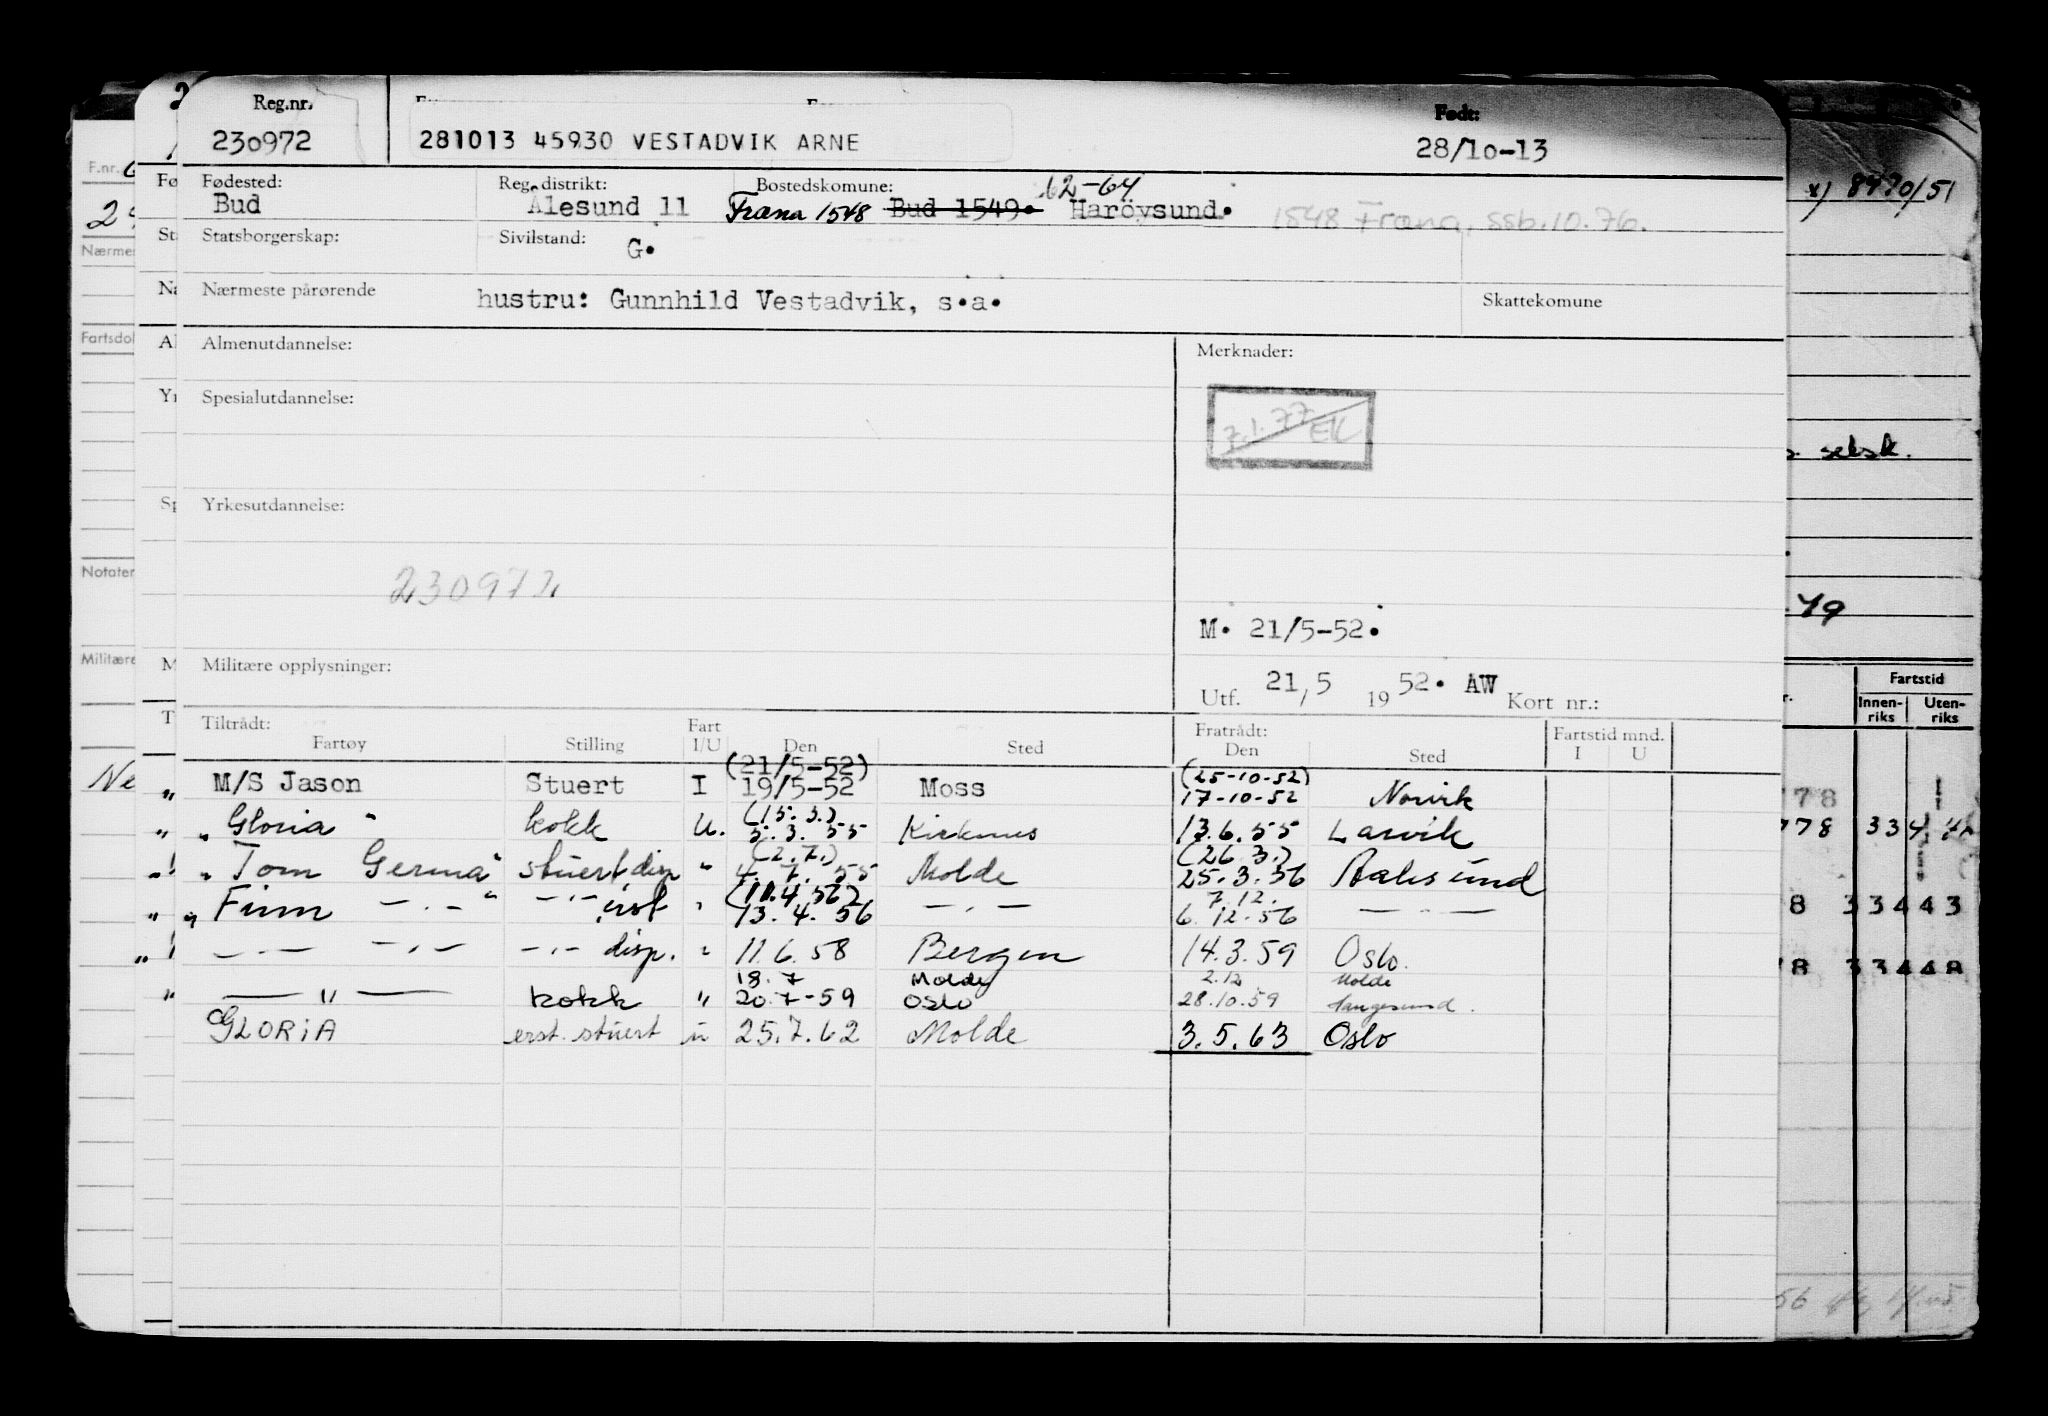 Reg.nr. Født:
230972 281013 45930 VESTADVIK ARNE 28/10-13
Fødested: Reg. distrikt: Bostedskomune: 62-64
Bud Ålesund 11 Fræna 1548 Bud 1549. Haröysund. 1548 Fræna, ssb.10.76.
x) 8470/51
Statsborgerskap: Sivilstand: G.
Nærmeste pårørende hustru: Gunnhild Vestadvik, s.a. Skattekomune
Almenutdannelse: Merknader:
Spesialutdannelse: 7.1.77 EK
selsk.
Yrkesutdannelse:
230972
M. 21/5-52.
Militære opplysninger:
Utf. 21/5 1952. AW Kort nr.:
Tiltrådt: Fratrådt: Fartstid mnd.
Fartøy Stilling Fart I/U Den Sted Den Sted I U
(21/5-52) (25-10-52)
M/S Jason Stuert I 19/5-52 Moss 17-10-52 Norvik
(15.3.)
" Gloria " kokk U. 5.3.55 Kirkenes 13.6.55 Larvik
(2.7.) (26.3.)
" Tom Germa " stuert disp " 4.7.55 Molde 25.3.56 Aalesund
(11.4.56) 7.12.
" Finn —.—" —.— " 13.4.56 —.— 6.12.56 —.—
—.— —.— —.— disp. " 11.6.58 Bergen 14.3.59 Oslo.
18.7 Molde 2.12 Molde
— " — kokk " 20.7-59 Oslo 28.10.59
GLORIA erst. stuert u 25.7.62 Molde 3.5.63 Oslo
F.nr.
Nærmes
Fartsdo
Notater
Militære
Ne
Fartstid
Innen-riks Uten-riks
778
778 334
8 33443
78 33448